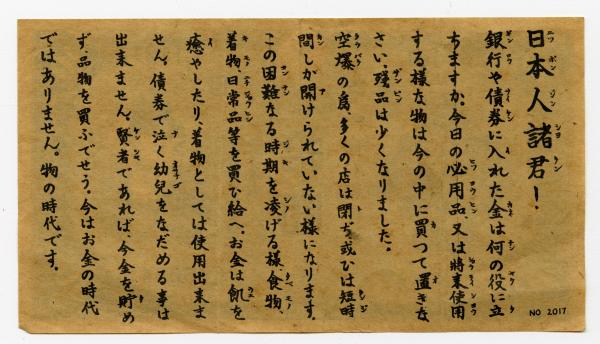 日本人諸君!
銀行や債券に入れた金は何の役に立
ちますか。今日の必用品又は將来使用
する様な物は今の中に買つて置きな
さい。殘品は少くなりました。
空爆の為、多くの店は閉ぢ、或ひは短時
間しか開けられていない様になります。
この困難なる時期を凌げる様食物、
着物、日常品等を買ひ給へ、お金は飢を
癒やしたり、着物としては使用出来ま
せん。債券で泣く幼兒をなだめる事は
出来ません。賢者であれば、今金を貯め
ず、品物を買ふでせう。今はお金の時代
ではありません。物の時代です。
NO 2017